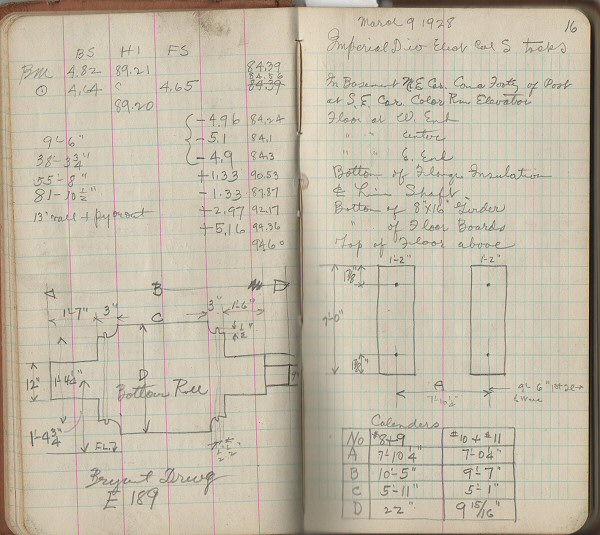 BS HI FS
BM 4.82 89.21 84.39
84.56
⊙ 4.64 " 4.65 84.39
89.20
-4.96 84.24
9'-6" -5.1 84.1
38'-3 3/4" -4.9 84.3
55'-8" +1.33 90.53
81'-10 1/2" -1.33 87.87
13" wall +2.97 92.17
+5.16 94.36
94.60
B
1'-7" 3" C 3" 1'-6"
12" 1'-4 1/2" D
Bottom Roll
1'-4 3/4" FL.
Bryant Drewg
E 189
March 9 1928 16
Imperial Div Elect Cal S
In Basement N.E. Cor. of Post
at S.E. Cor. Color Rm Elevator
Floor at W. End
" " center
" " E. End
Bottom of Flange Insulation
⅊ Line Shaft
Bottom of 8"x16" Girder
" of Floor Boards
Top of Floor above
1'-2" 1'-2"
9'-0"
A
7'-10 1/2"
9'-6"
Calenders
No #8+9 #10+#11
A 7'-10 1/4" 7'-0 1/4"
B 10'-5" 9'-7"
C 5'-11" 5'-1"
D 22" 9 15/16"